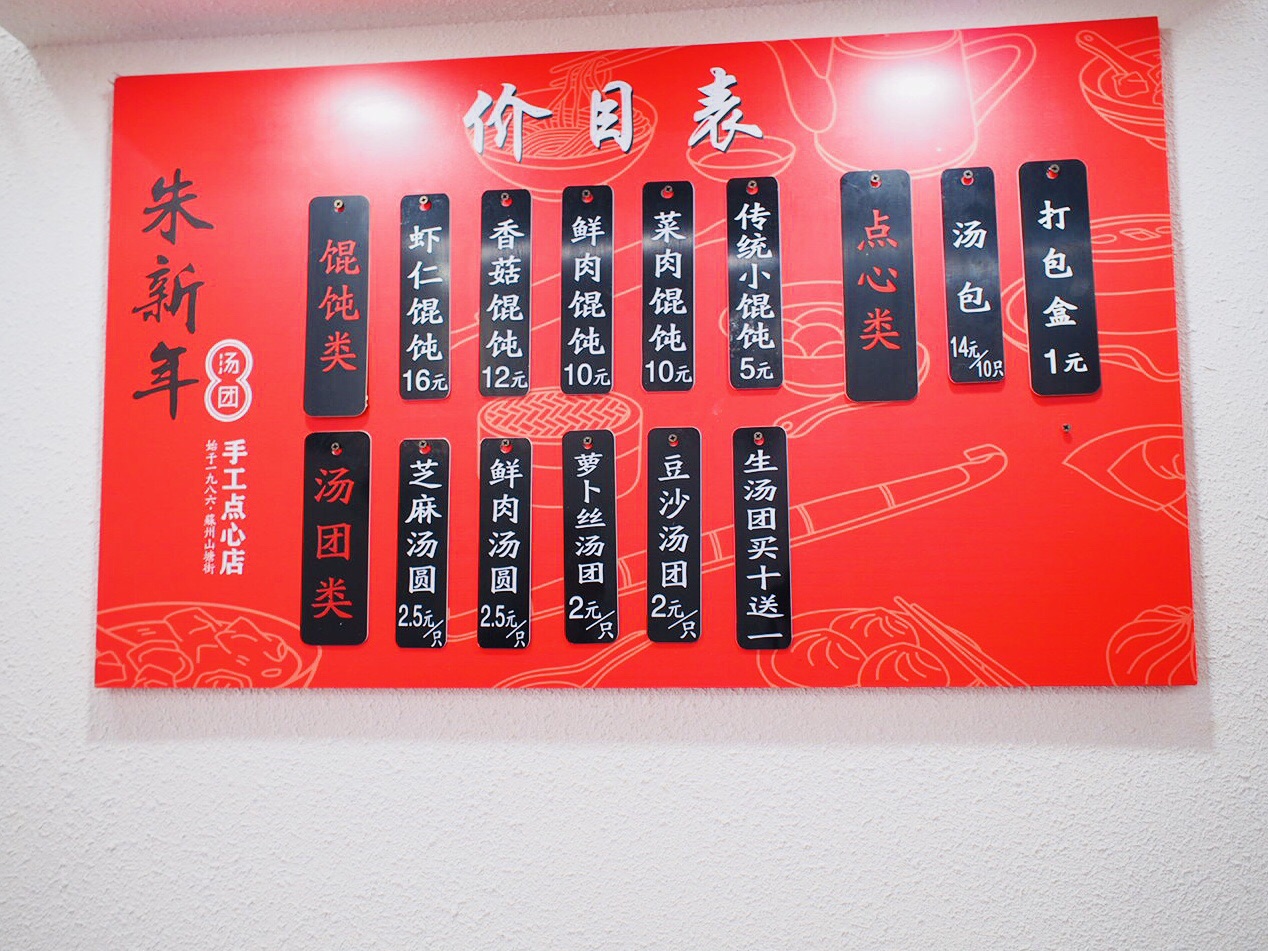 价目表
朱新年
汤团
手工点心店
始于一九八六·蘇州山塘街
馄饨类
虾仁馄饨16元
香菇馄饨12元
鲜肉馄饨10元
菜肉馄饨10元
传统小馄饨5元
点心类
汤包14元/10只
打包盒1元
汤团类
芝麻汤圆2.5元/只
鲜肉汤圆2.5元/只
萝卜丝汤团2元/只
豆沙汤团2元/只
生汤团买十送一